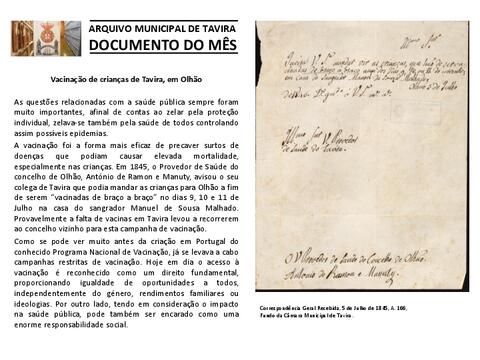 ARQUIVO MUNICIPAL DE TAVIRA
DOCUMENTO DO MÊS
Vacinação de crianças de Tavira, em Olhão
As questões relacionadas com a saúde pública sempre foram
muito importantes, afinal de contas ao zelar pela proteção
individual, zelava-se também pela saúde de todos controlando
assim possíveis epidemias.
A vacinação foi a forma mais eficaz de precaver surtos de
doenças que podiam causar elevada mortalidade,
especialmente nas crianças. Em 1845, o Provedor de Saúde do
concelho de Olhão, António de Ramon e Manuty, avisou o seu
colega de Tavira que podia mandar as crianças para Olhão a fim
de serem “vacinadas de braço a braço” no dias 9, 10 e 11 de
Julho na casa do sangrador Manuel de Sousa Malhado.
Provavelmente a falta de vacinas em Tavira levou a recorrerem
ao concelho vizinho para esta campanha de vacinação.
Como se pode ver muito antes da criação em Portugal do
conhecido Programa Nacional de Vacinação, já se levava a cabo
campanhas restritas de vacinação. Hoje em dia o acesso à
vacinação é reconhecido como um direito fundamental,
proporcionando igualdade de oportunidades a todos,
independentemente do género, rendimentos familiares ou
ideologias. Por outro lado, tendo em consideração o impacto
na saúde pública, pode também ser encarado como uma
enorme responsabilidade social.
as crianças, que
de braço a braço
em casa do Sangrador Manoel de Souza
5 de Julho
Provedor
de Saude de Tavira
O Provedor de Saude do Concelho de Olhão
Antonio de Ramon e Manuty
Correspondência Geral Recebida, 5 de Julho de 1845, A. 166,
Fundo da Câmara Municipal de Tavira.